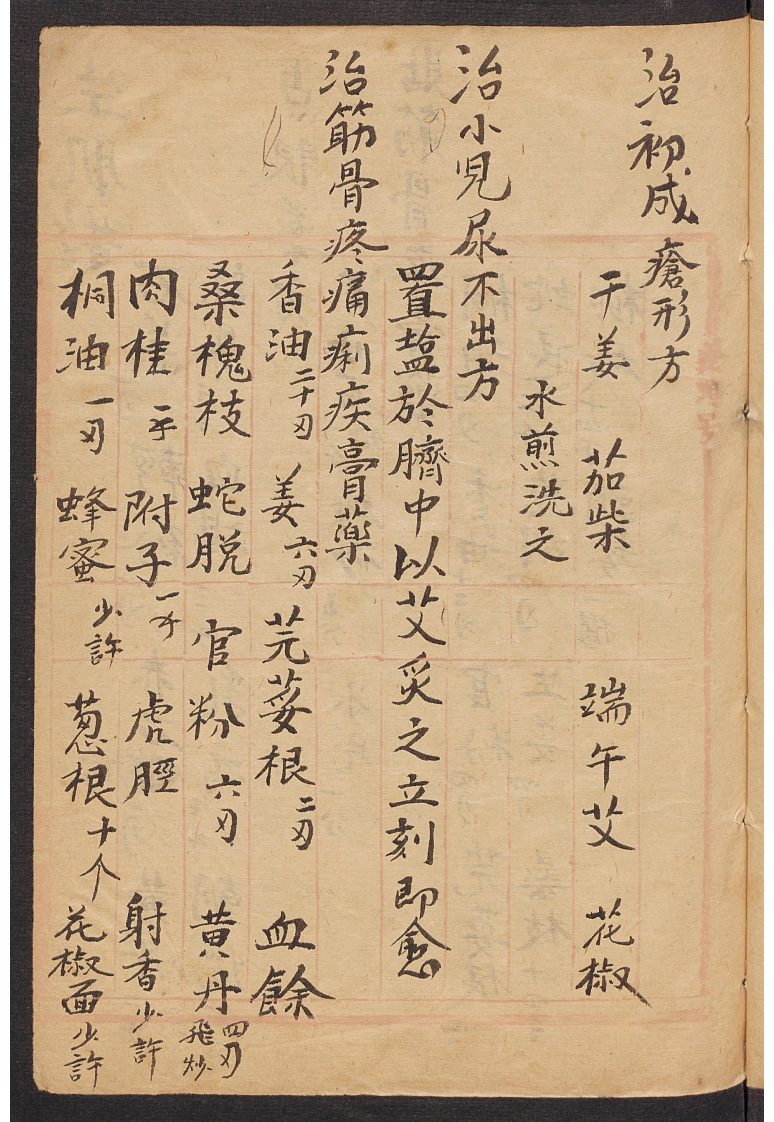 治初成瘡形方
干姜 茄柴 端午艾 花椒
水煎洗之
治小児尿不出方
置盐於臍中以艾炙之立刻即愈
治筋骨疼痛痢疾膏薬
香油二十刄 姜六刄 芫荽根二刄 血餘
桑槐枝 蛇脱 官粉六刄 黄丹四刄飛炒
肉桂 附子 虎脛 射香少許
桐油一刄 蜂蜜少許 葱根十个 花椒面少許